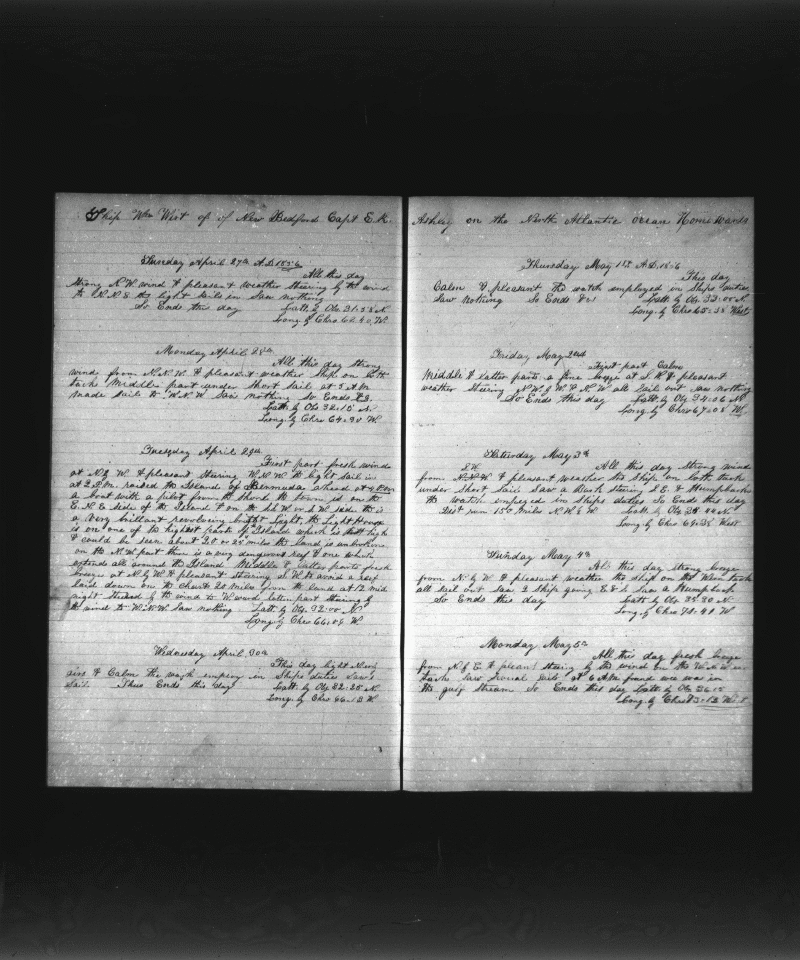 Ship Wm Wirt of New Bedford Capt E. K.
Sunday April 27th A.D. 1856
All this day
strong N.W. wind & pleasant weather Steering by the wind
to N.N.E. the light sails in Saw nothing
So Ends this day Latt. by Obs 31.58 N
Long. by Chro 62.40 W.
Monday April 28th
All this day strong
wind from N.N.W. & pleasant weather ship on both
tacks Middle part under short sail at 5 A.M.
made sail to W.N.W. Saw nothing So Ends &c.
Latt. by Obs 32.15 N.
Long. by Chro 64.30 W.
Tuesday April 29th
First part fresh winds
at N. by W. & pleasant Steering W.N.W. the light sail in
at 2 P.M. raised the Island of Bermuda ahead at 4 P.M.
a boat with a pilot from the shore the town is on the
E.N.E. side of the Island & on the S.W. side there is
a very brilliant revolving bright Light, the Light House
is on one of the highest parts of Island which is high
& could be seen about 20 or 25 miles the land is unbroken
on the N.W. part there is a very dangerous reef & one which
extends all around the Island Middle & latter parts fresh
breeze at N. by W. & pleasant steering S.W. to avoid a reef
laid down on the chart 20 miles from the land at 12 mid
night Steered by the wind to W.ward latter part steering by
the wind to W.N.W. Saw nothing Latt. by Obs. 32.00 N
Long. by Chro 66.09 W
Wednesday April 30th
This day light
airs & Calm the watch employ in Ships duties Saw a
Sail. Thus Ends this day Latt. by Obs 32.25 N.
Long. by Chro 66.13 W
Ashley on the North Atlantic Ocean Homewards
Thursday May 1st A.D. 1856
This day
Calm & pleasant the watch employed in Ships duties
Saw nothing So Ends &c Latt. by Obs. 33.00 N
Long. by Chro 65.58 West
Friday May 2nd
First part Calm
Middle & latter parts a fine breeze at S.W. & pleasant
weather Steering N.W. & W.N.W. all sail out saw nothing
So Ends this day Latt by Obs. 34.06 N
Long. by Chro 67.08 W
Saturday May 3rd
S.W.
All this day strong wind
from & pleasant weather the ship on both tacks
under short sail saw a Bark steering S.E. & Humpbacks
the watch employed in ships duties So Ends this day
Dist run 150 miles Latt by Obs 35.40 N
Long. by Chro 69.35 West
Sunday May 4th
All this day strong breeze
from N. by W. & pleasant weather the ship on the tack
all sail out saw 2 Ships going E. & saw a Humpback
So Ends this day Latt. by Obs 35.30 N.
Long. by Chro 70.40 W
Monday May 5th
All this day fresh breeze
from N. by E. & pleasant steering by the wind on the
tack saw several sails at 6 A.M. found we was in
the gulf stream So Ends this day Latt by Obs 36.15
Long. by Chro 73.12 West